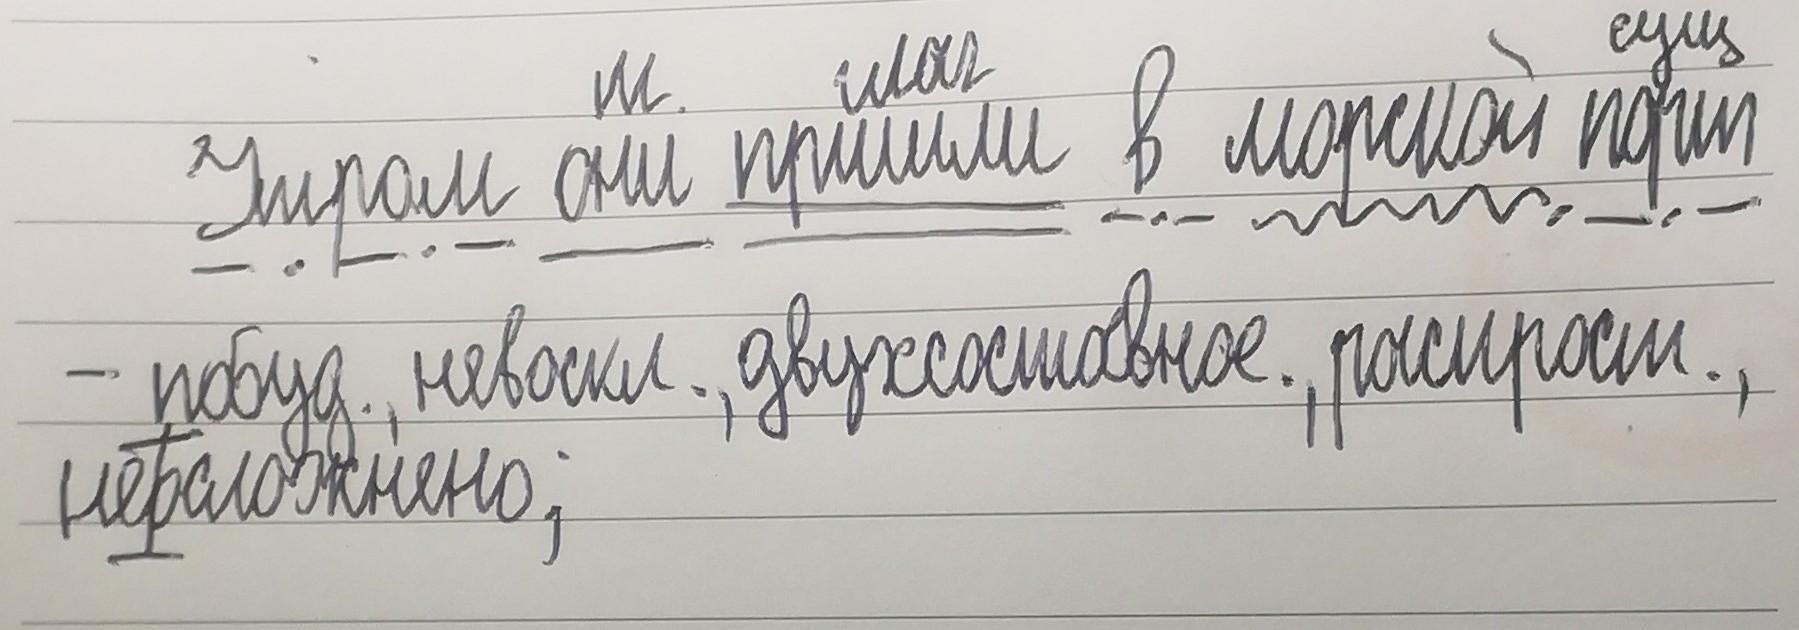 м. глаг сущ
Утром они пришли в морской порт
- побуд., невоскл., двухсоставное., распрост.,
неосложнено;